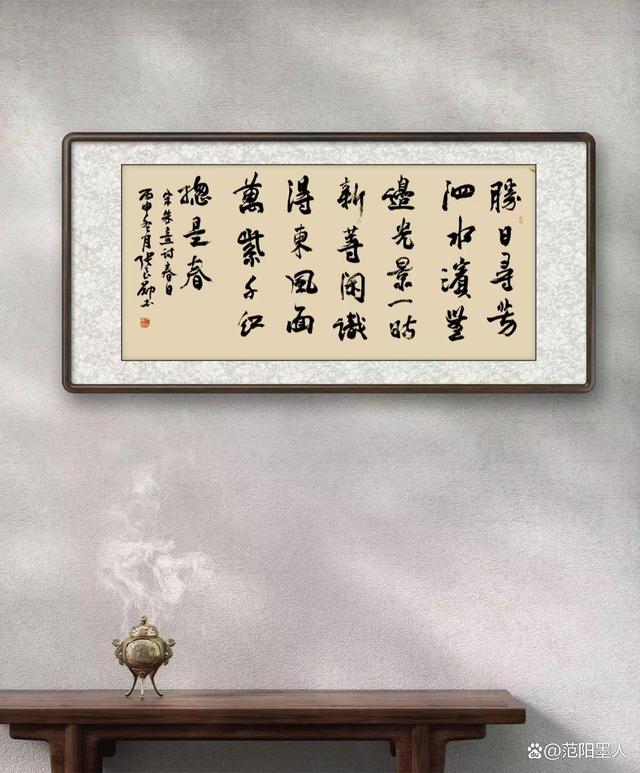 勝日尋芳
泗水濱無
邊光景一時
新等閑識
得東風面
萬紫千紅
摠是春
宋朱熹诗春日
丙申冬月
@范阳墨人